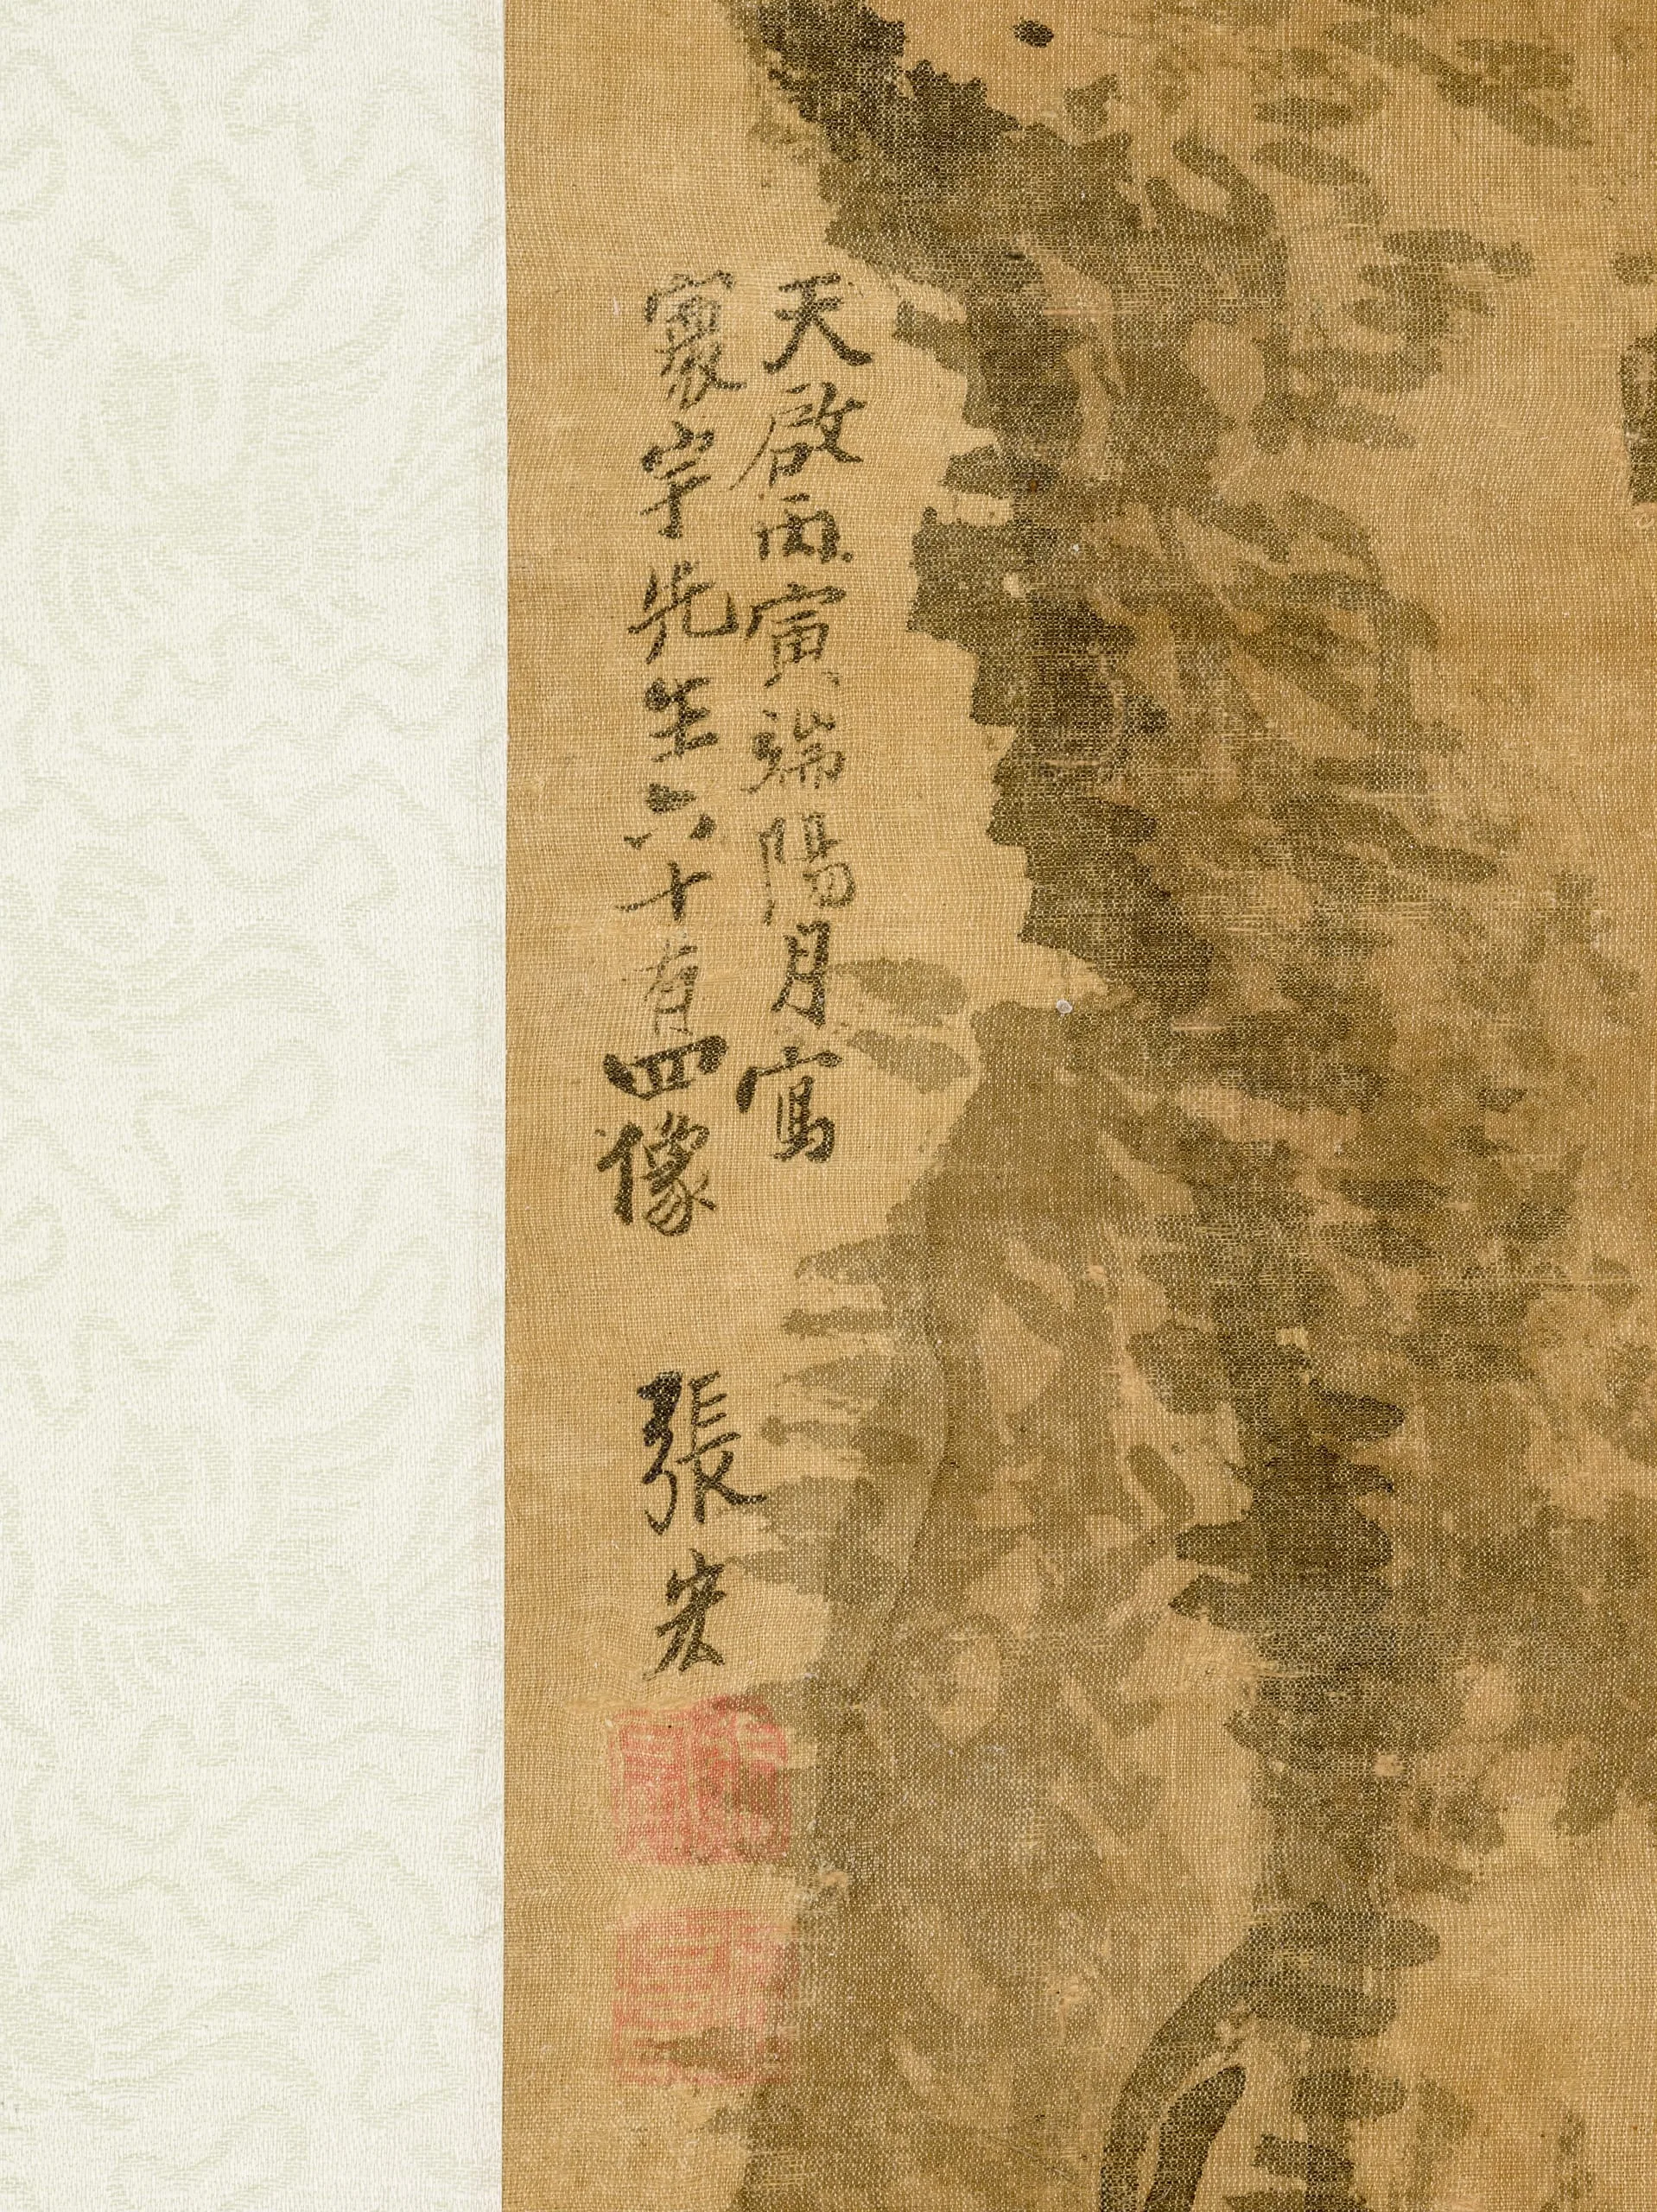 天啟丙寅端陽月寫
寰宇先生六十有四像
張宏